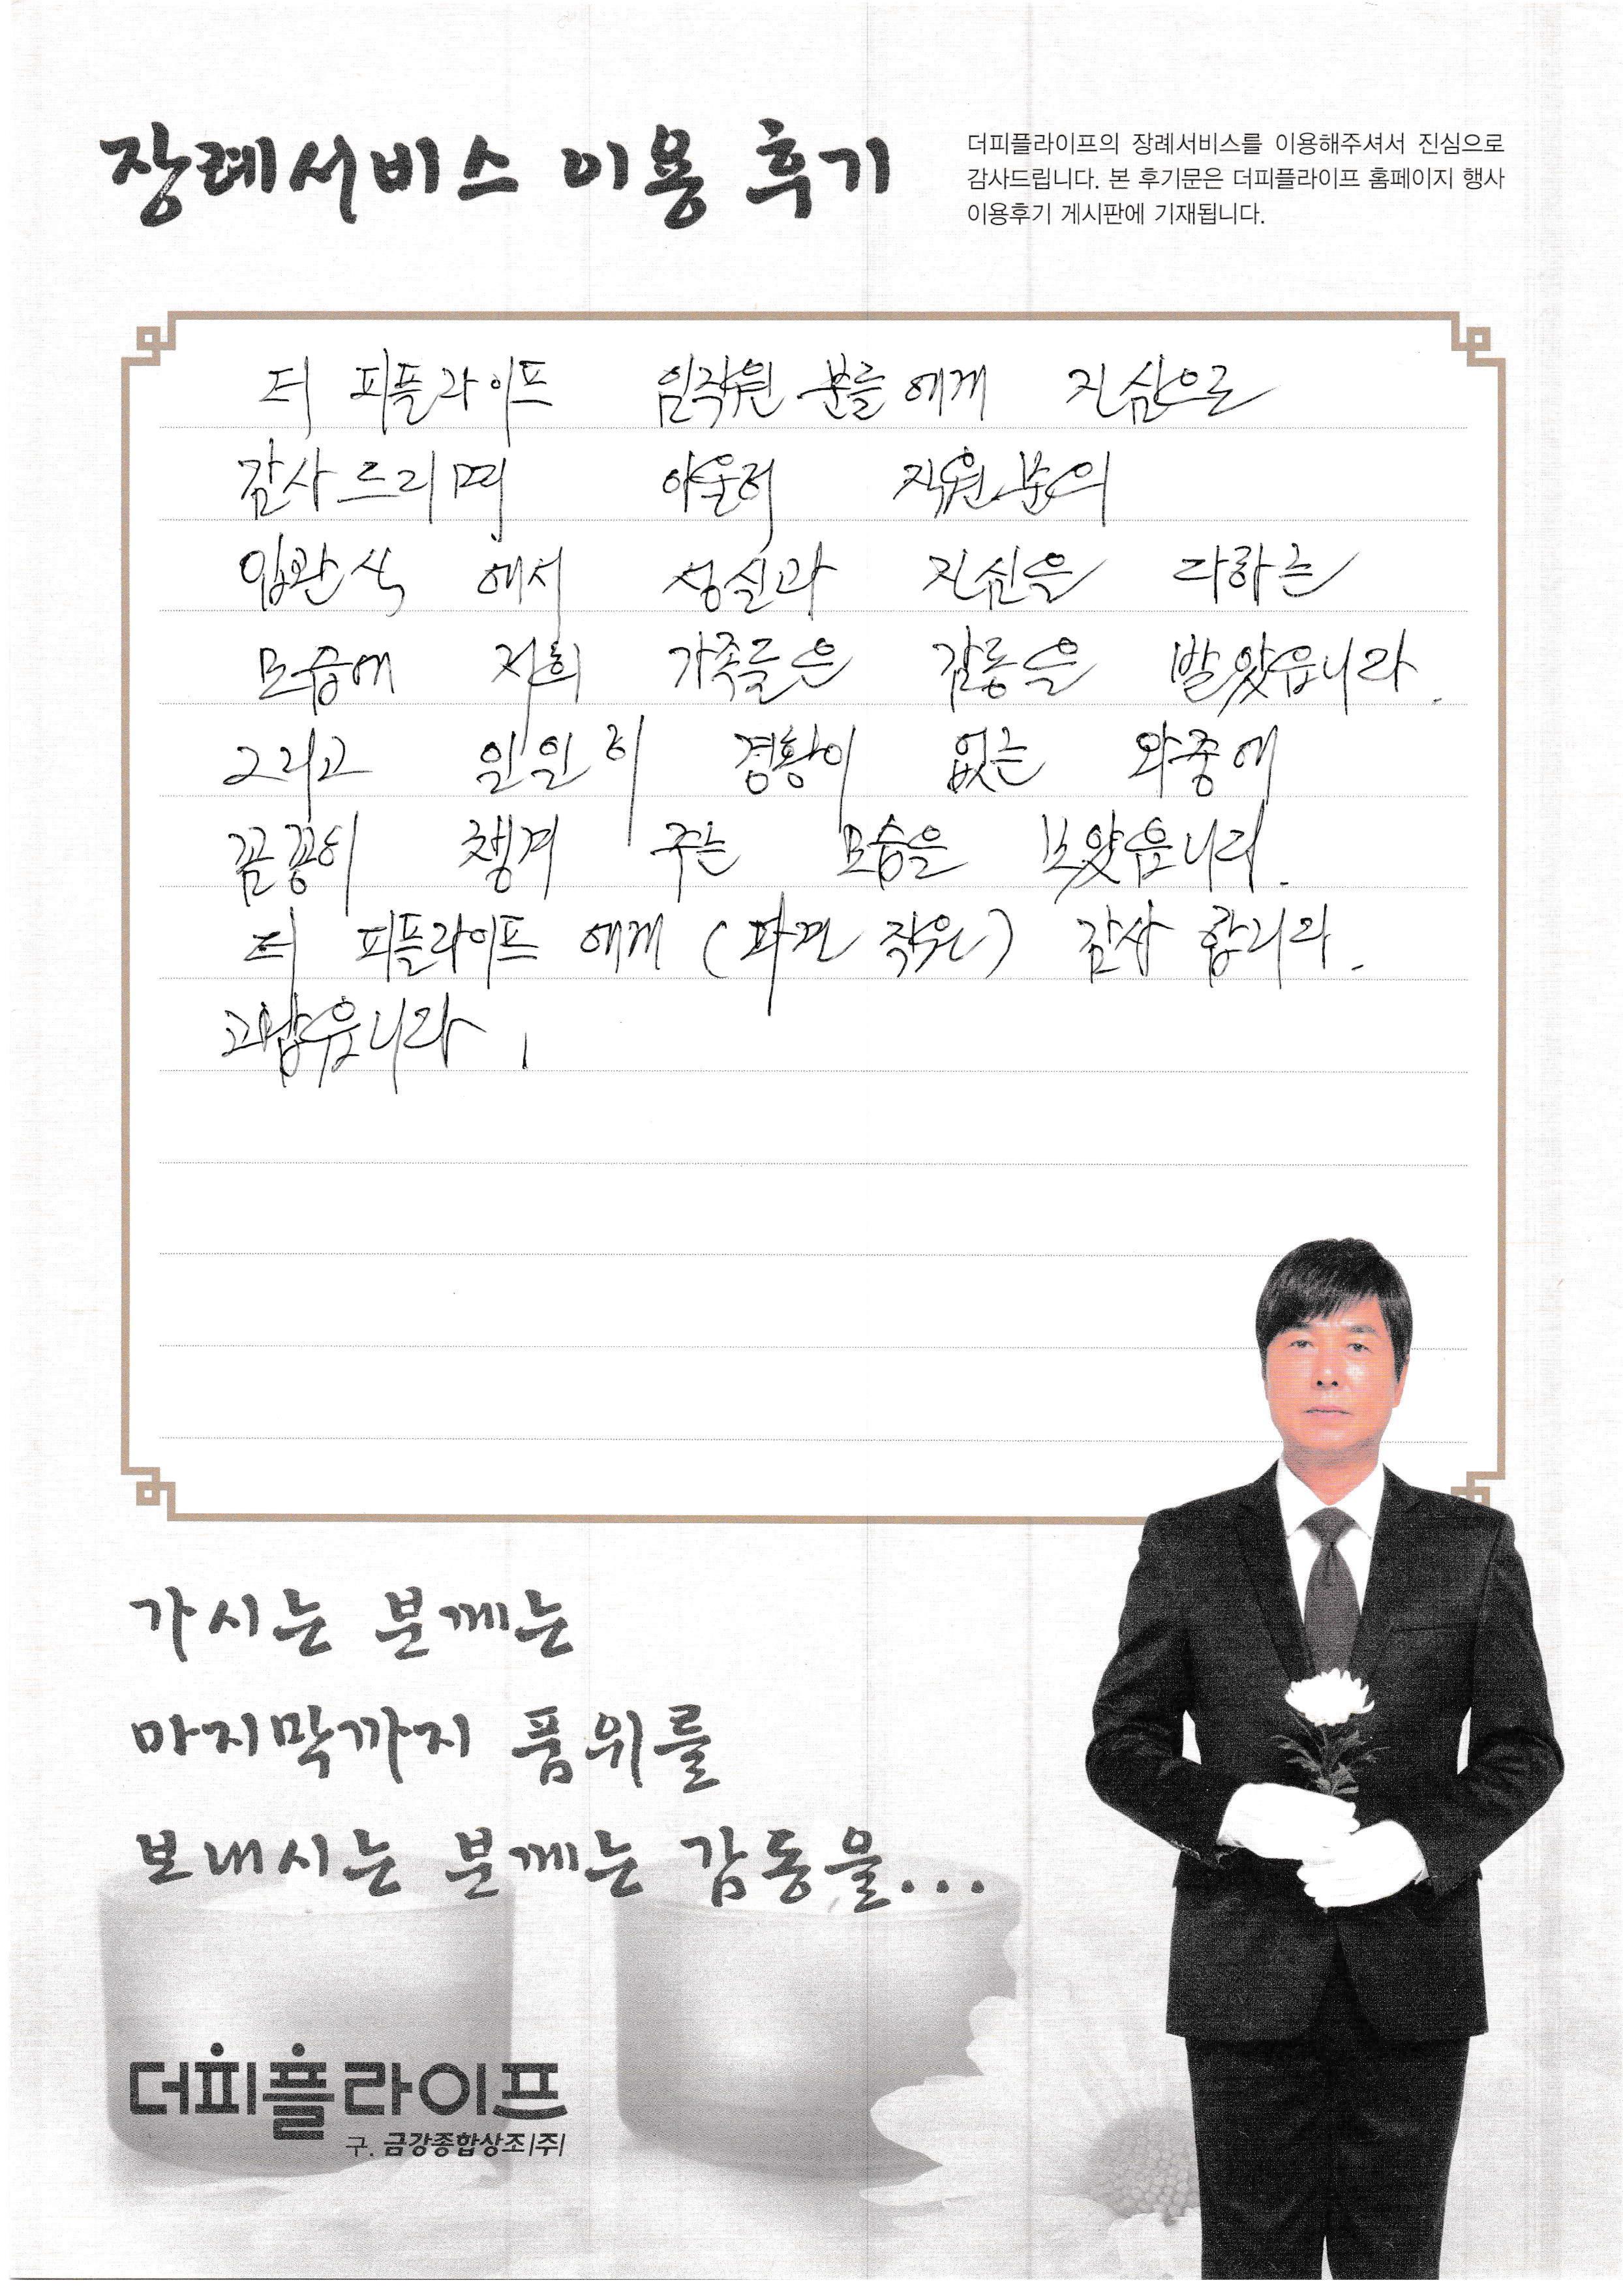 장례서비스 이용 후기
더피플라이프의 장례서비스를 이용해주셔서 진심으로
감사드립니다. 본 후기문은 더피플라이프 홈페이지 행사
이용후기 게시판에 기재됩니다.
더 피플라이프 임직원 분들에게 진심으로
감사드리며 아울러 직원분의
입관식 에서 성실과 진심을 다하는
모습에 저희 가족들은 감동을 받았읍니다.
그리고 일일히 경황이 없는 와중에
꼼꼼히 챙겨 주는 모습을 보았읍니다.
더 피플라이프 에게 (파견 직원) 감사 합니다.
고맙읍니다.
가시는 분께는
마지막까지 품위를
보내시는 분께는 감동을...
더피플라이프
구. 금강종합상조|주|